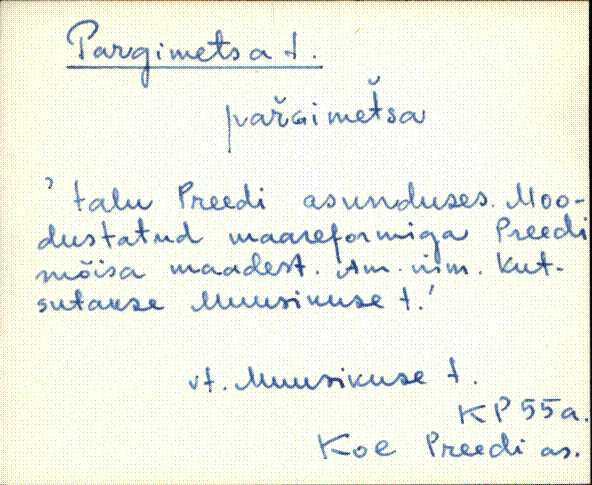 Pargimetsa t.
pařGimeťsa
' talu Preedi asunduses. Moo-
dustatud maareformiga Preedi
mõisa maadest. Am. nim. Kut-
sutakse Muusikuse t.'
vt. Muusikuse t.
KP 55a.
Koe Preedi as.